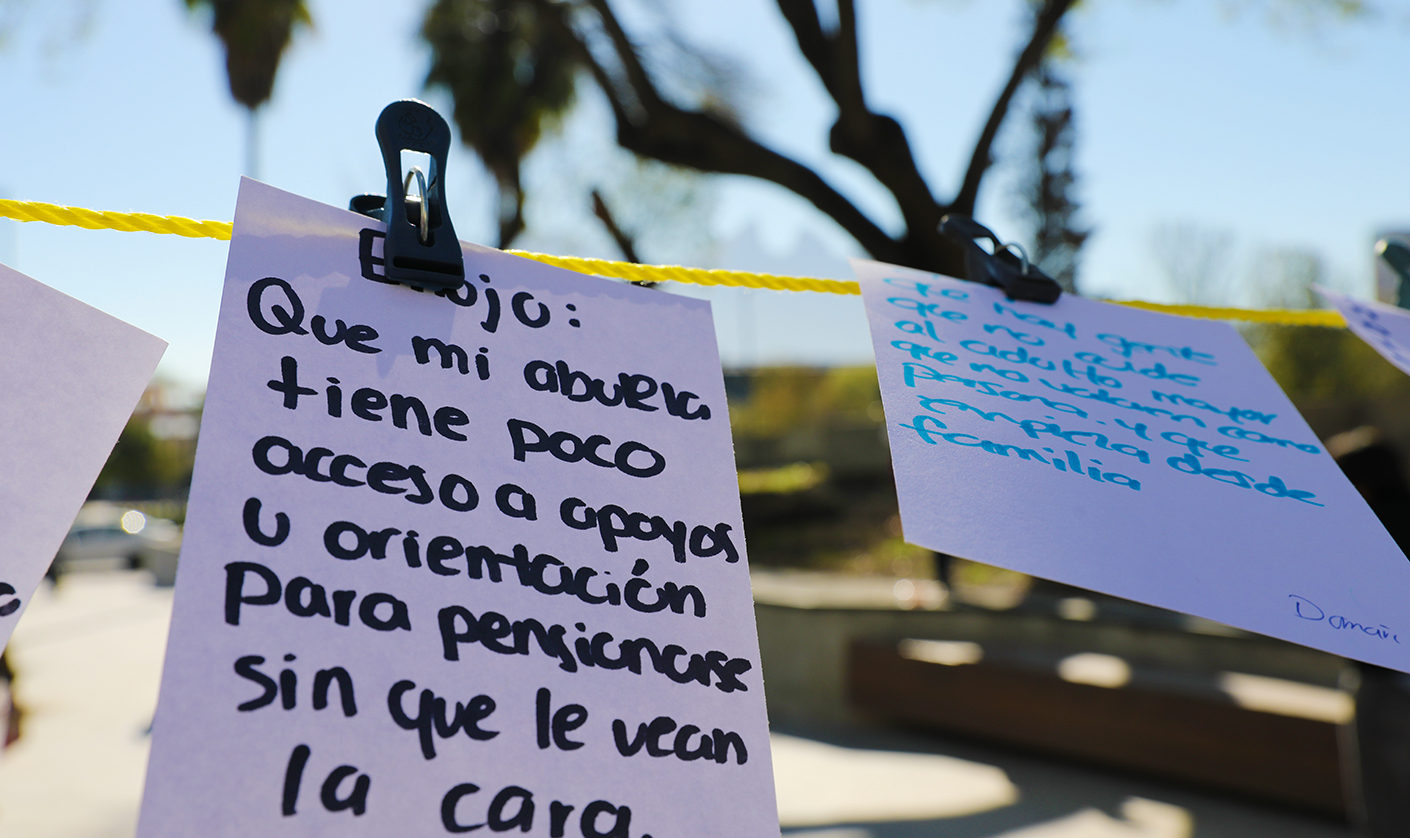 Enojo:
Que mi abuela
tiene poco
acceso a apoyos
u orientación
para pensionarse
sin que le vean
la cara.
que hay gente
que no ayude
al adulto mayor
que no valoran como
persona. y que
empieza desde
familia